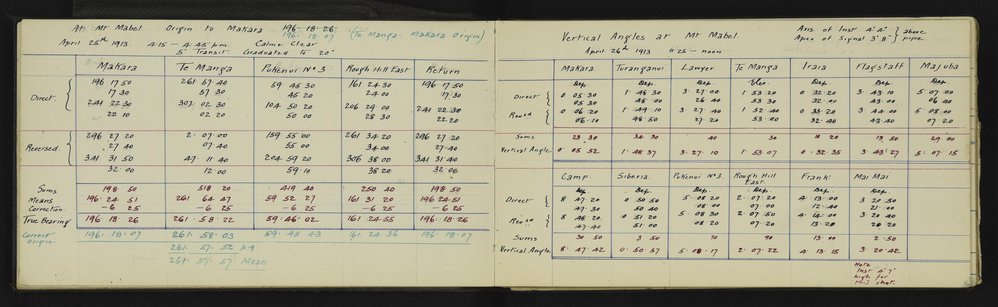 At Mt Mabel Origin to Makara 196·18·26
196·18·07 (Te Manga - Makara origin)
April 25th 1913 4·15 – 4·45 p.m. Calm & Clear
5" Transit. Graduated to 20"
Makara Te Manga Pukenui No 3 Rough Hill East Return
196 17 50 261 57 40 59 45 30 161 24 30 196 17 50
Direct 17 30 57 30 45 20 24 00 17 30
241 22 30 307 02 30 104 50 20 206 29 00 241 22 30
22 10 02 20 50 00 28 30 22 20
296 27 20 2 07 00 159 55 00 261 34 20 296 27 20
Reversed 27 40 07 40 55 00 34 00 27 40
341 31 50 47 11 40 204 59 20 306 38 00 341 31 40
32 00 12 00 59 10 38 20 32 00
Sums 198 50 518 20 419 40 250 40 198 50
Means 196 24 51 261 64 47 59 52 27 161 31 20 196 24 51
Correction – 6 25 – 6 25 – 6 25 – 6 25 – 6 25
True Bearing 196 18 26 261 58 22 59 46 02 161 24 55 196 18 26
Correct Origin 196·18·07 261·58·03 59·45·43 161·24·36 196·18·07
261 57·52 p 9
261·57·57 Mean
Vertical Angles at Mt Mabel
Axis of Inst 4' 2"
Apex of Signal 3' 8" above pipe
April 26th 1913 11·25 – noon
Makara Turanganui Lawyer Te Manga Iraia Flagstaff Majuba
Dep. Dep. Dep. Elev. Dep. Dep. Dep.
Direct 0 05 30 1 48 30 3 27 00 1 53 20 0 32 20 3 43 10 5 07 00
05 30 48 00 26 40 53 30 32 40 43 00 06 40
Revsd 0 06 20 1 49 10 3 27 40 1 52 40 0 33 20 3 44 00 5 08 00
06 10 48 50 27 20 53 00 32 40 43 40 07 20
Sums 23 30 34 30 40 30 10 20 13 50 29 00
Vertical Angle 0 05 52 1 48 37 3 27 10 1 53 07 0 32 35 3 43 27 5 07 15
Camp Siberia Pukenui No 3. Rough Hill East Frank Mai Mai
Dep. Dep. Dep. Dep. Dep. Dep.
Direct 8 47 20 0 50 50 5 08 20 2 07 20 4 13 00 3 20 50
47 30 50 40 08 00 07 00 12 40 21 00
Revsd 8 48 20 0 51 20 5 08 30 2 07 50 4 14 00 3 20 40
47 40 51 00 08 20 07 20 13 20 20 20
Sums 30 50 3 50 70 90 13 00 2 50
Vertical Angle 8 47 42 0 50 57 5 08 17 2 07 22 4 13 15 3 20 42
Note
Inst 4' 7"
high for
this shot.